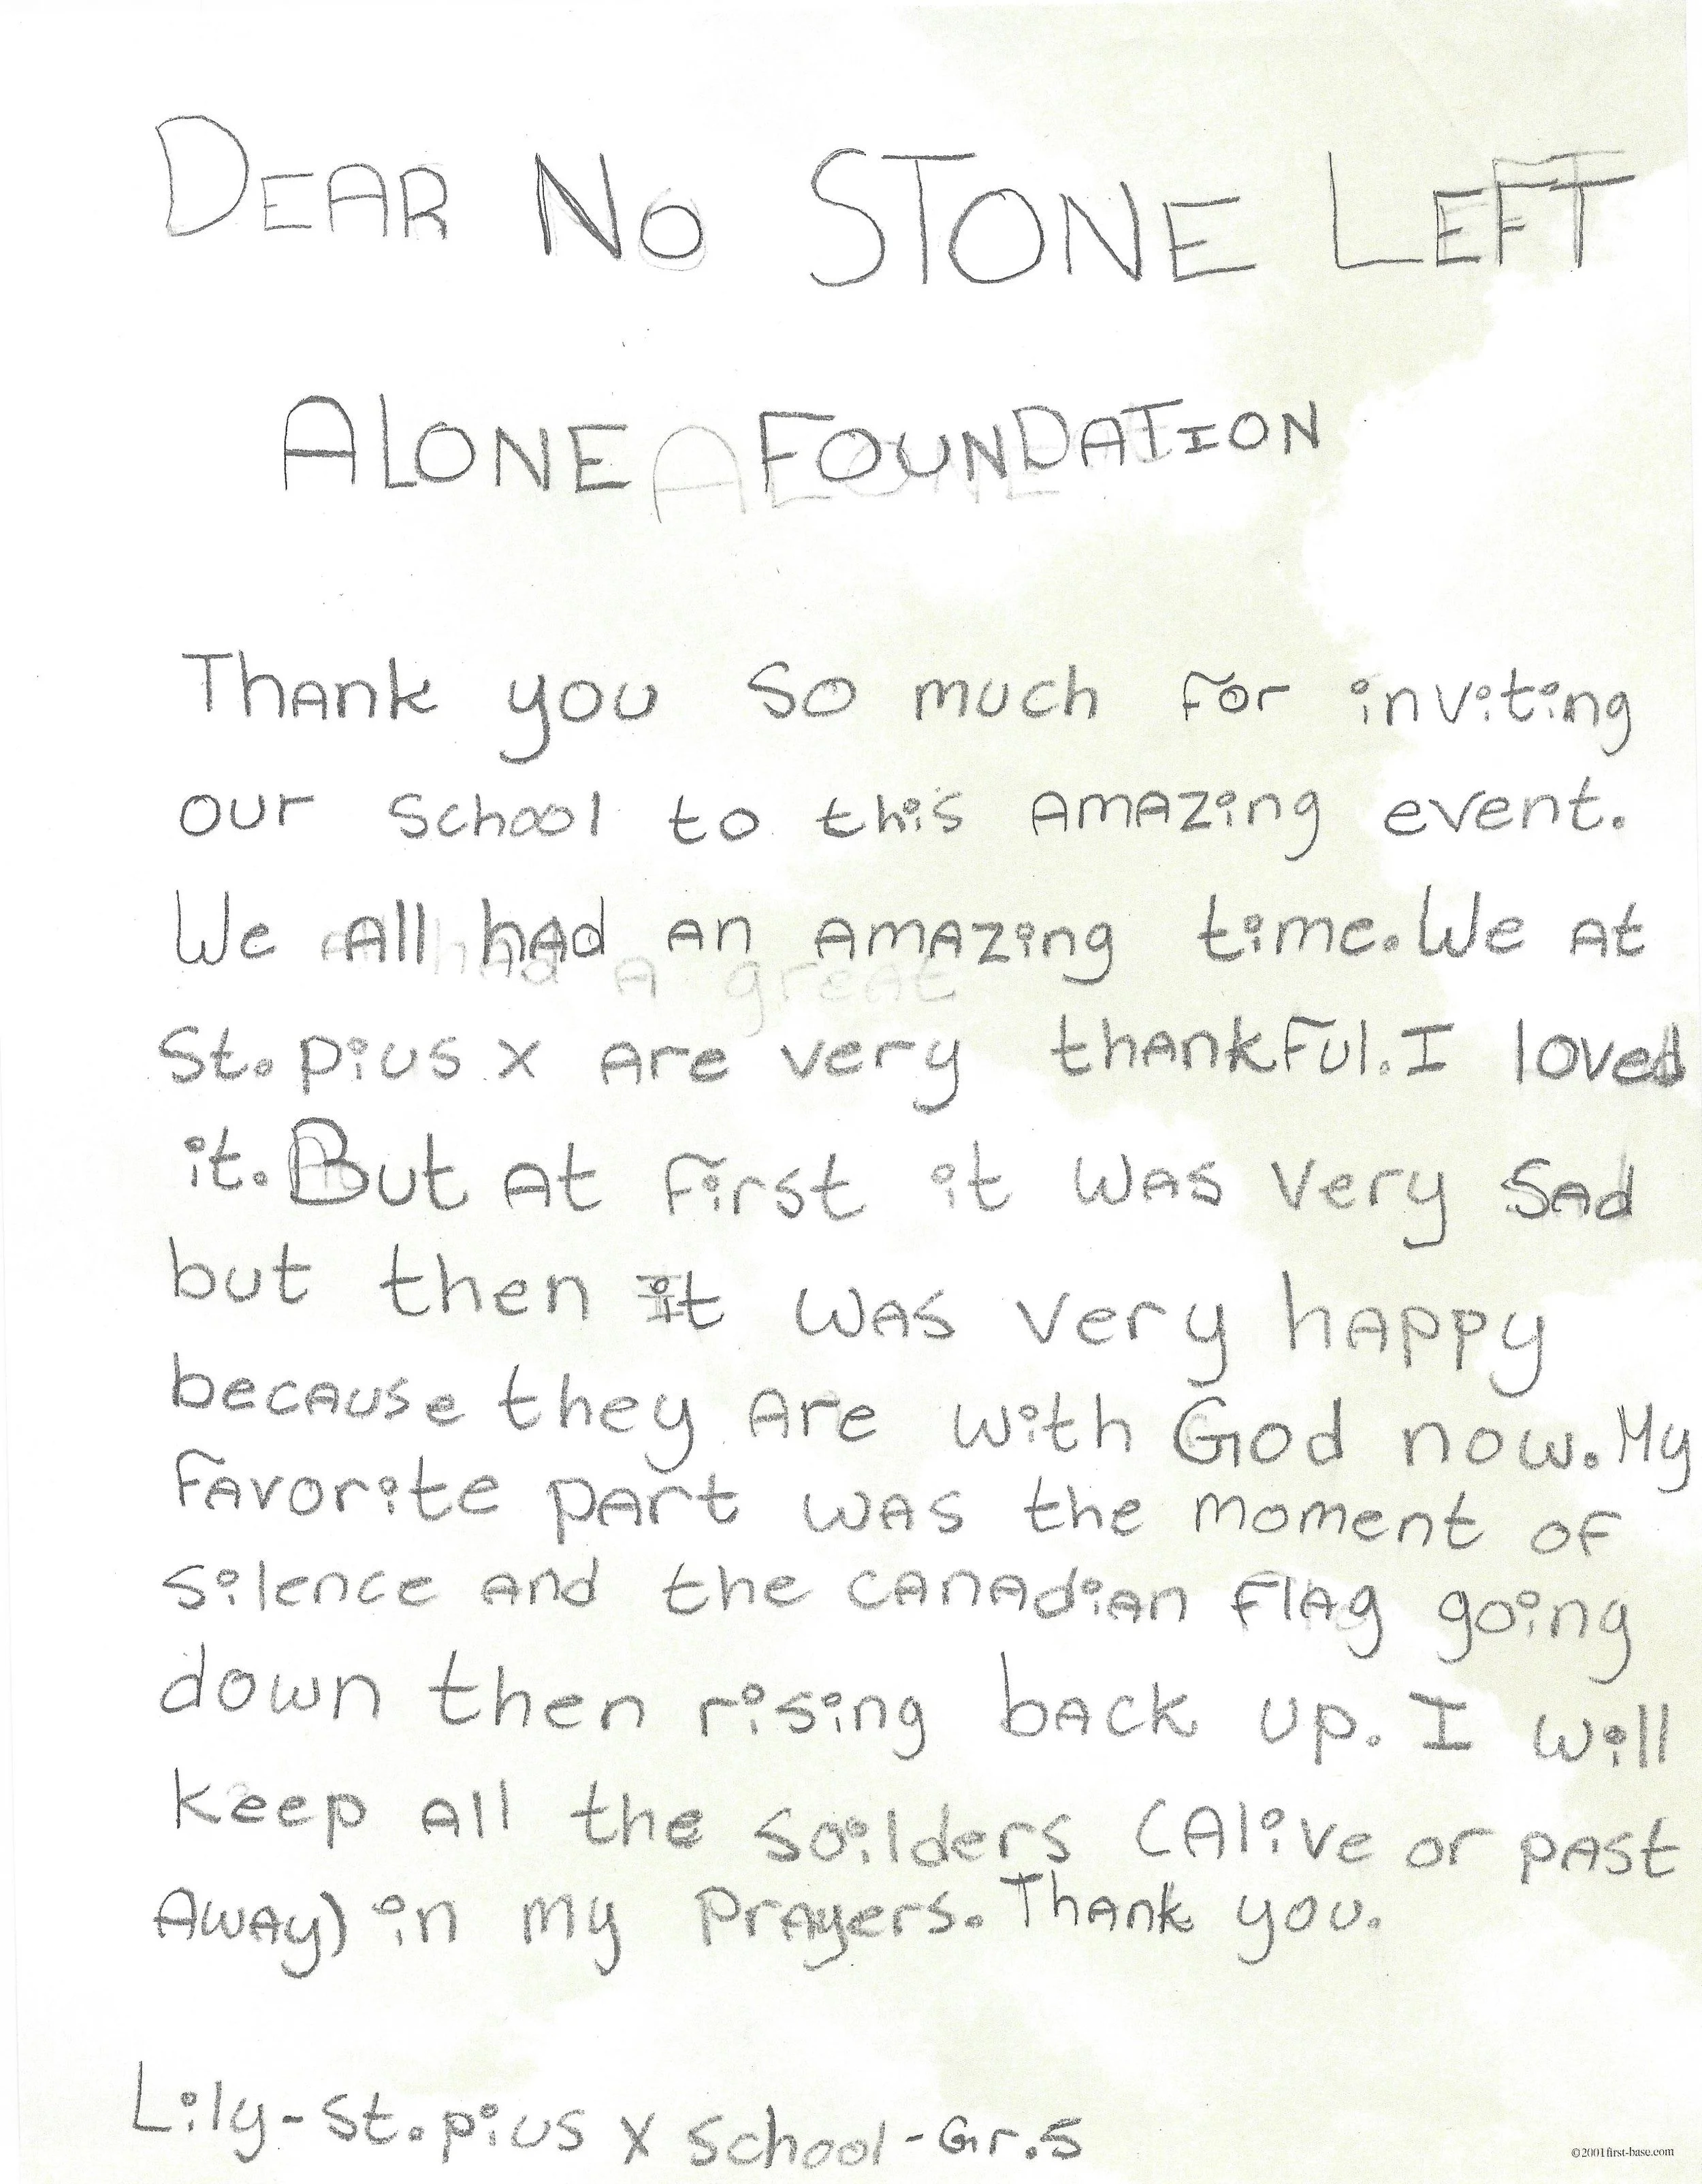 DEAR NO STONE LEFT
ALONE FOUNDATION
Thank you so much for inviting
our school to this amazing event.
We all had an amazing time. We at
St. pius x are very thankful. I loved
it. But at first it was very sad
but then it was very happy
because they are with God now. My
favorite part was the moment of
silence and the canadian flag going
down then rising back up. I will
keep all the soilders (Alive or past
away) in my prayers. Thank you.
Lily - St. pius x school - Gr. 5
©2001 first-base.com